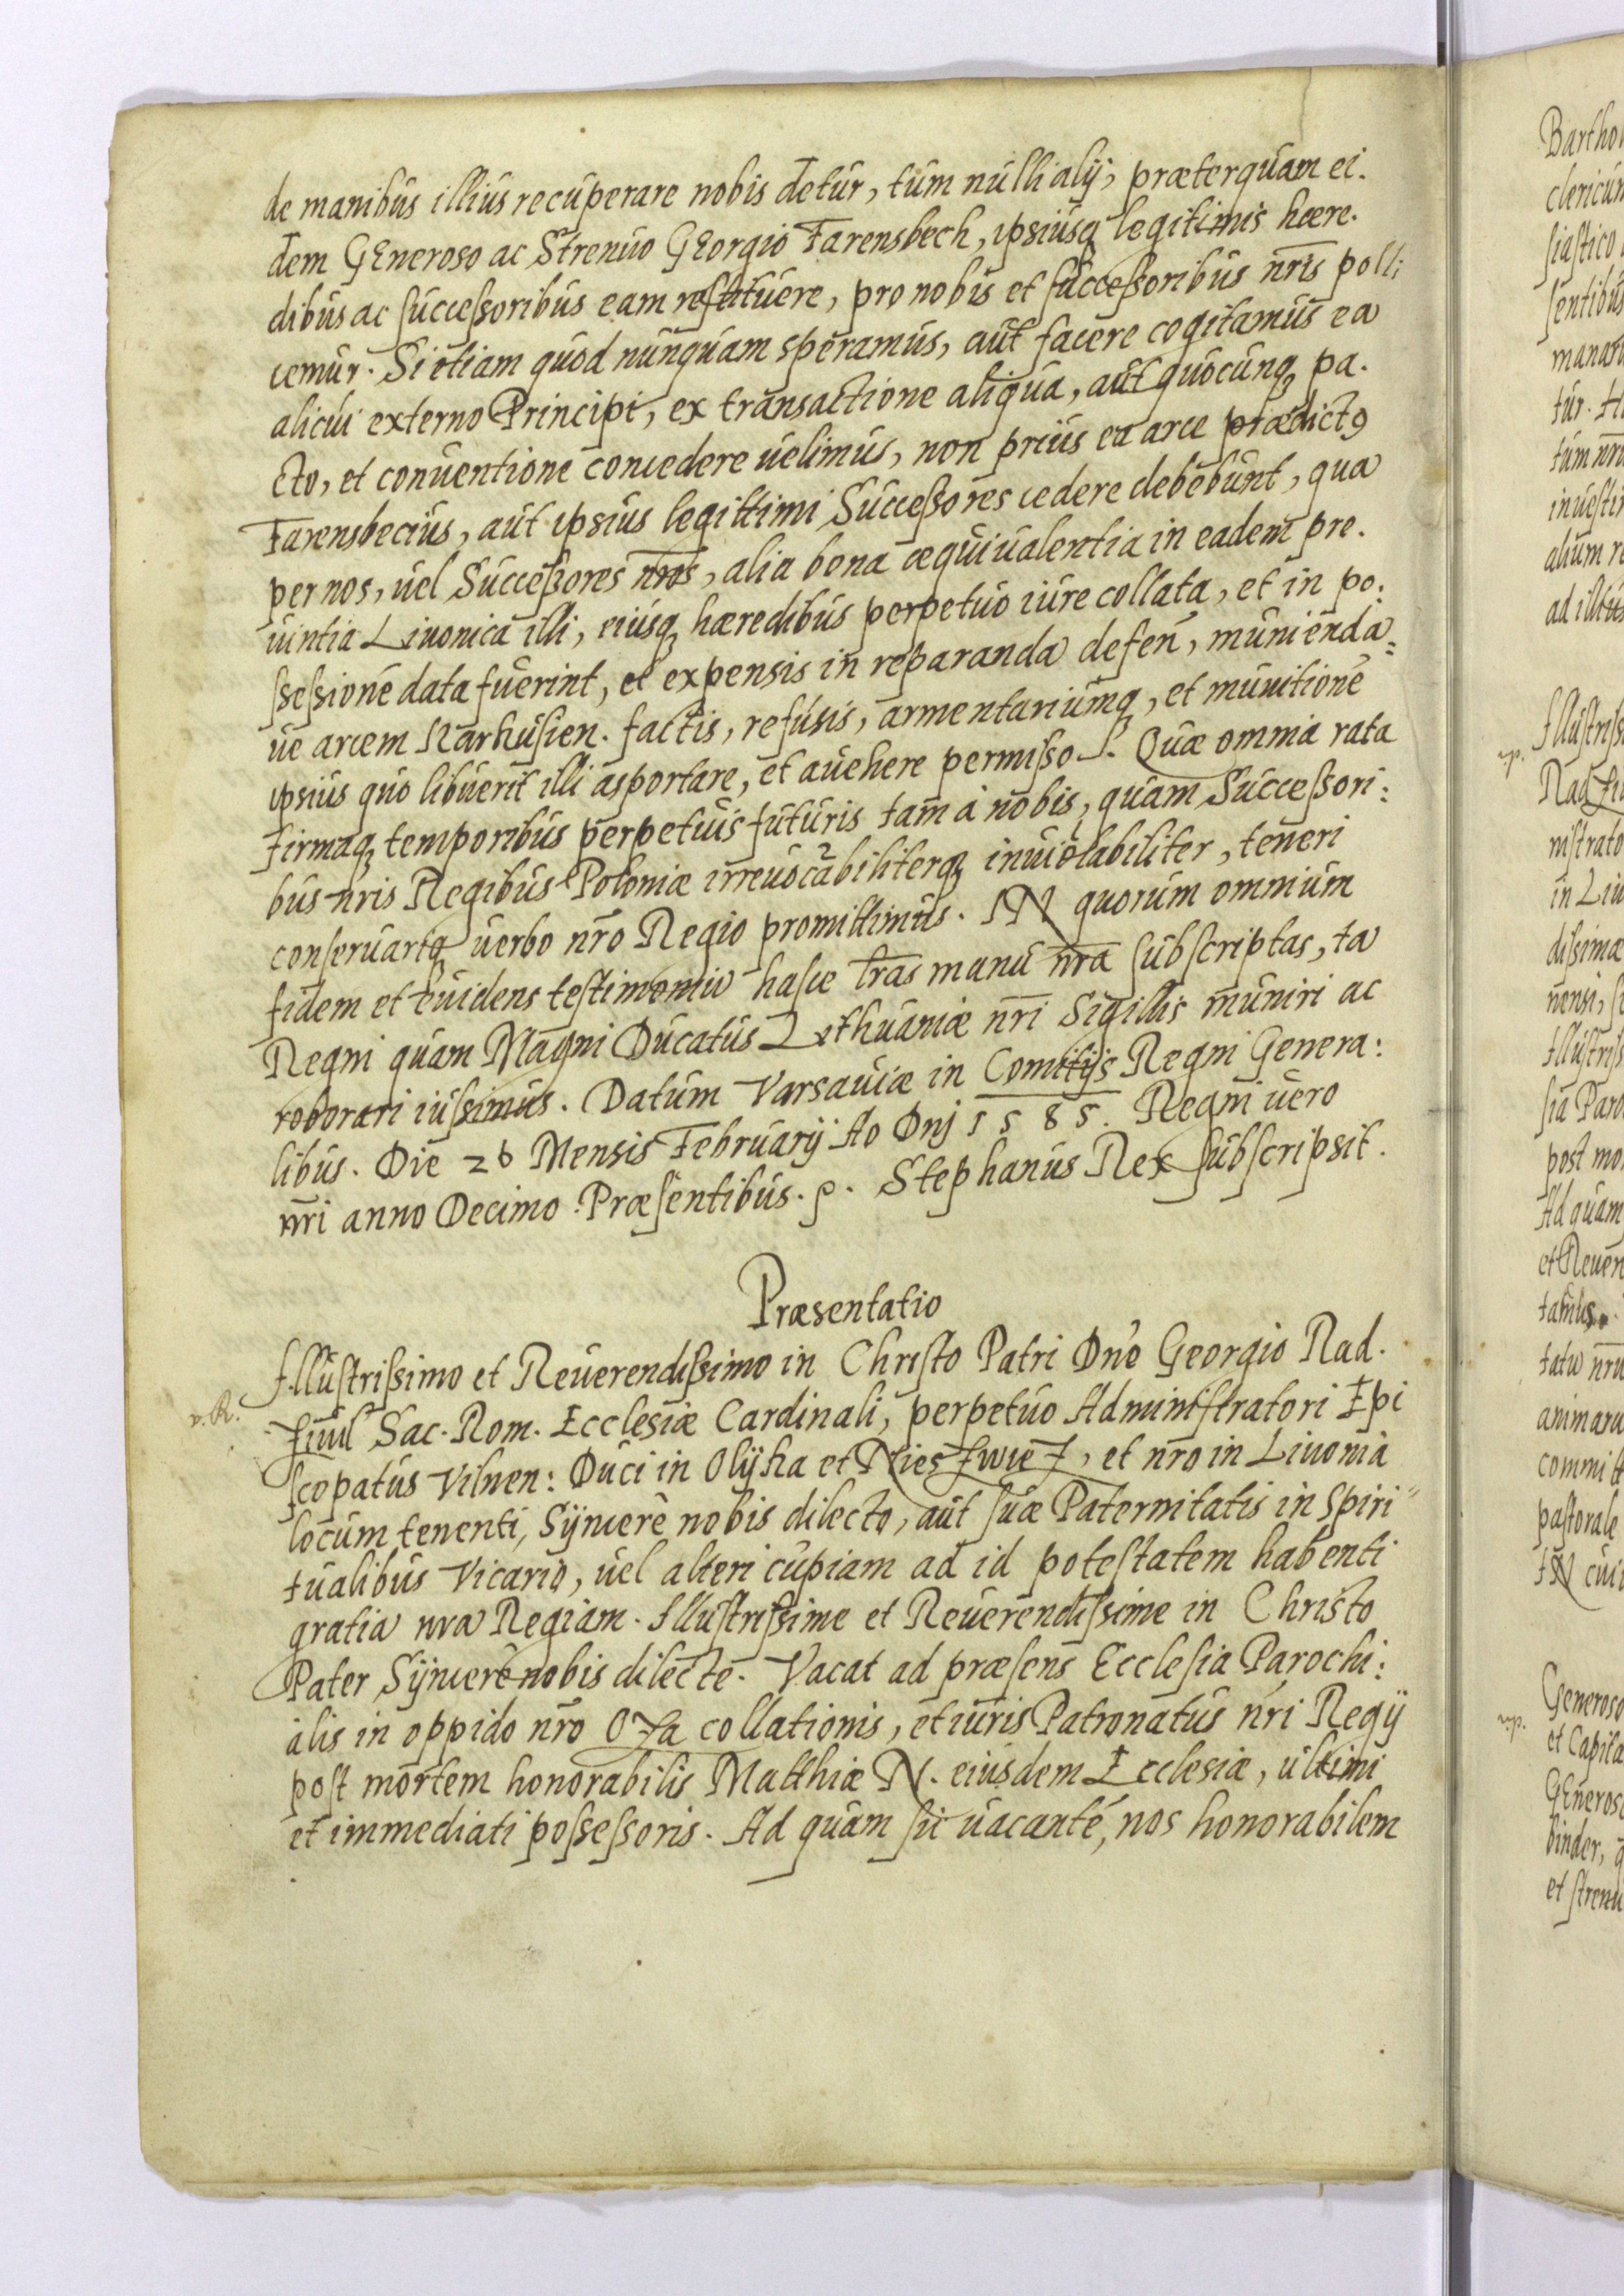 de manibus illius recuperare nobis detur, tum nulli alij, præterquam ei.
dem GEneroso ac Strenuo GEorgio Farensbech, ipsiusq legitimis hære.
dibus ac successoribus eam restituere, pro nobis et successoribus nr̃is polli
cemur. Si etiam quod nunquam speramus, aut facere cogitamus ea
alicui externo Principi, ex transactione aliqua, aut quocunq pa.
cto, et conuentione concedere uelimus, non prius ea arce prædictꝰ
Farensbecius, aut ipsius legittimi Successores cedere debebunt, qua
per nos, uel Successores nr̃os, alia bona æquiualentia in eadem pro.
uintia Liuonica illi, eiusq hæredibus perpetuo iure collata, et in po:
ssessionē data fuerint, et expensis in reparanda defen̄, munienda=
ue arcem Karkusien. factis, refusis, armentariumq, et munitionē
ipsius quo libuerit illi asportare, et auehere permisso. Quæ omnia rata
firmaq temporibus perpetuis futuris tam à nobis, quam Successori:
bus nr̃is Regibus Poloniæ irreuocabiliterq inuiolabiliter, teneri
conseruariq uerbo nr̃o Regio promittimus. IN quorum omnium
fidem et euidens testimoniū hasce l̃ras manu nr̃a subscriptas, tā
Regni quam Magni Ducatus Lithuaniæ nr̃i Sigillis muniri ac
roborari iussimus. Datum Varsauiæ in Comitijs Regni Genera:
libus. Die 26 Mensis Februarij Ao Dnj 1585. Regni uero
nr̃i anno Decimo. Præsentibus. p. Stephanus Rex subscripsit.
Præsentatio
Illustrissimo et Reuerendissimo in Christo Patri Dnō Georgio Rad.
v. R.
ziuil Sac. Rom. Ecclesiæ Cardinali, perpetuo Administratori Epi
scopatus Vilnen: Duci in Olijka et Nieszwiez, et nr̃o in Liuonia
locum tenenti, Syncerè nobis dilecto, aut suæ Paternitatis in Spiri"
tualibus Vicario, uel alteri cupiam ad id potestatem habenti
gratiā nrā Regiam. Illustrissime et Reuerendissime in Christo
Pater Syncerè nobis dilecte. Vacat ad præsens Ecclesia Parochi:
alis in oppido nr̃o Oza collationis, et iuris Patronatus nr̃i Regij
post mortem honorabilis Matthiæ N. eiusdem Ecclesiæ, ultimi
et immediati possessoris. Ad quam sic uacantē, nos honorabilem